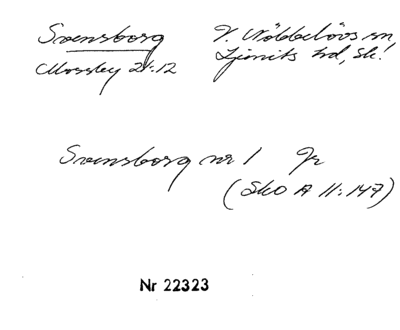 Svensborg V. Nöbbelövs sn
Mossby 21:12 Ljunits hd, Sk!
Svensborg nr 1 Gr
(SkO A 11:147)
Nr 22323